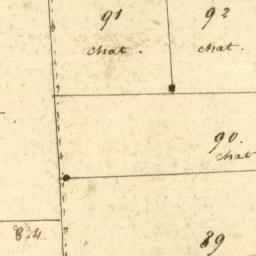 91
chat.
92
chat.
90.
chat
84
89